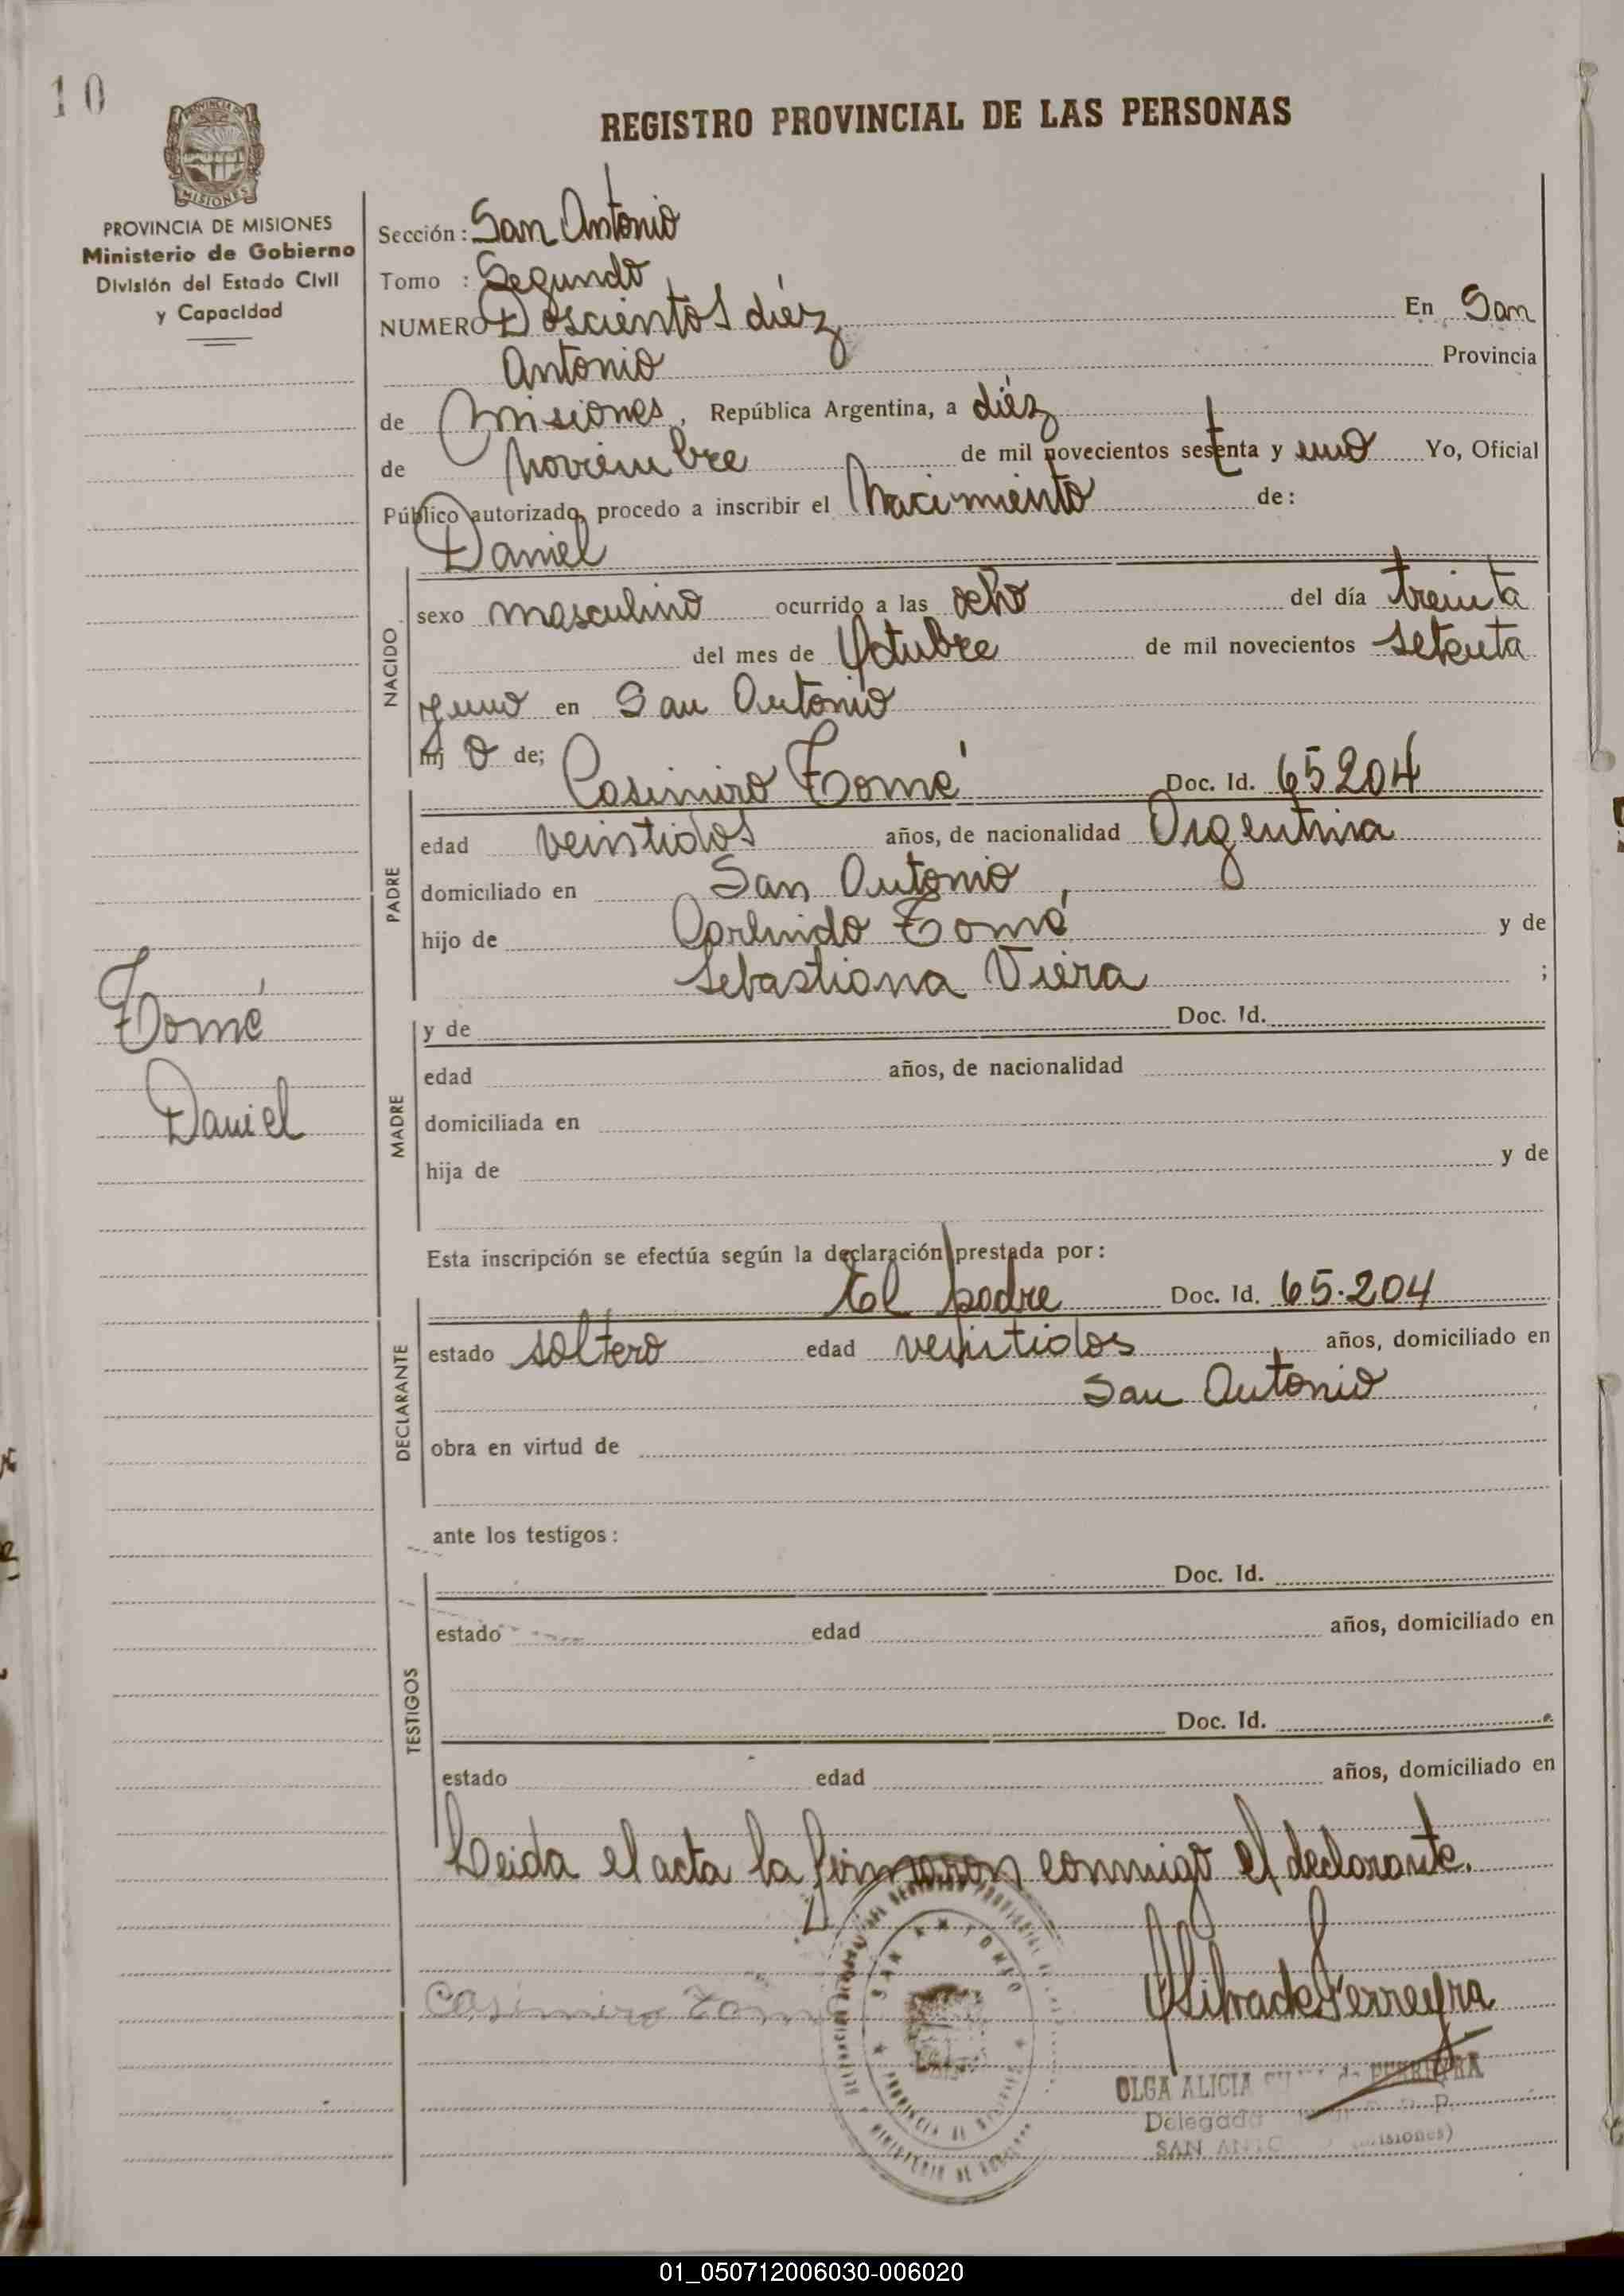 10
REGISTRO PROVINCIAL DE LAS PERSONAS
PROVINCIA DE MISIONES
Ministerio de Gobierno
División del Estado Civil
y Capacidad
Sección: San Antonio
Tomo : Segundo
NUMERO Doscientos diéz En San
Antonio Provincia
de Misiones, República Argentina, a diéz
de Noviembre de mil novecientos setenta y uno Yo, Oficial
Público autorizado, procedo a inscribir el Nacimiento de:
Daniel
NACIDO
sexo masculino ocurrido a las ocho del día treinta
del mes de Octubre de mil novecientos setenta
y uno en San Antonio
hij o de;
Casimiro Tomé Doc. Id. 65204
PADRE
edad veintidos años, de nacionalidad Argentina
domiciliado en San Antonio,
hijo de Tomé y de
Sebastiana Viera ;
Tomé
Daniel
MADRE
y de Doc. Id.
edad años, de nacionalidad
domiciliada en
hija de y de
Esta inscripción se efectúa según la declaración prestada por:
El padre Doc. Id. 65.204
DECLARANTE
estado soltero edad veintidos años, domiciliado en
San Antonio
obra en virtud de
ante los testigos:
TESTIGOS
Doc. Id.
estado edad años, domiciliado en
Doc. Id.
estado edad años, domiciliado en
Leida el acta la firmaron conmigo el declarante.
Casimiro Tome
OSilvadeFerreyra
SAN ANTONIO
PROVINCIA DE MISIONES
MINISTERIO DE
OLGA ALICIA de FERREYRA
Delegada
SAN (Misiones)
01_050712006030-006020